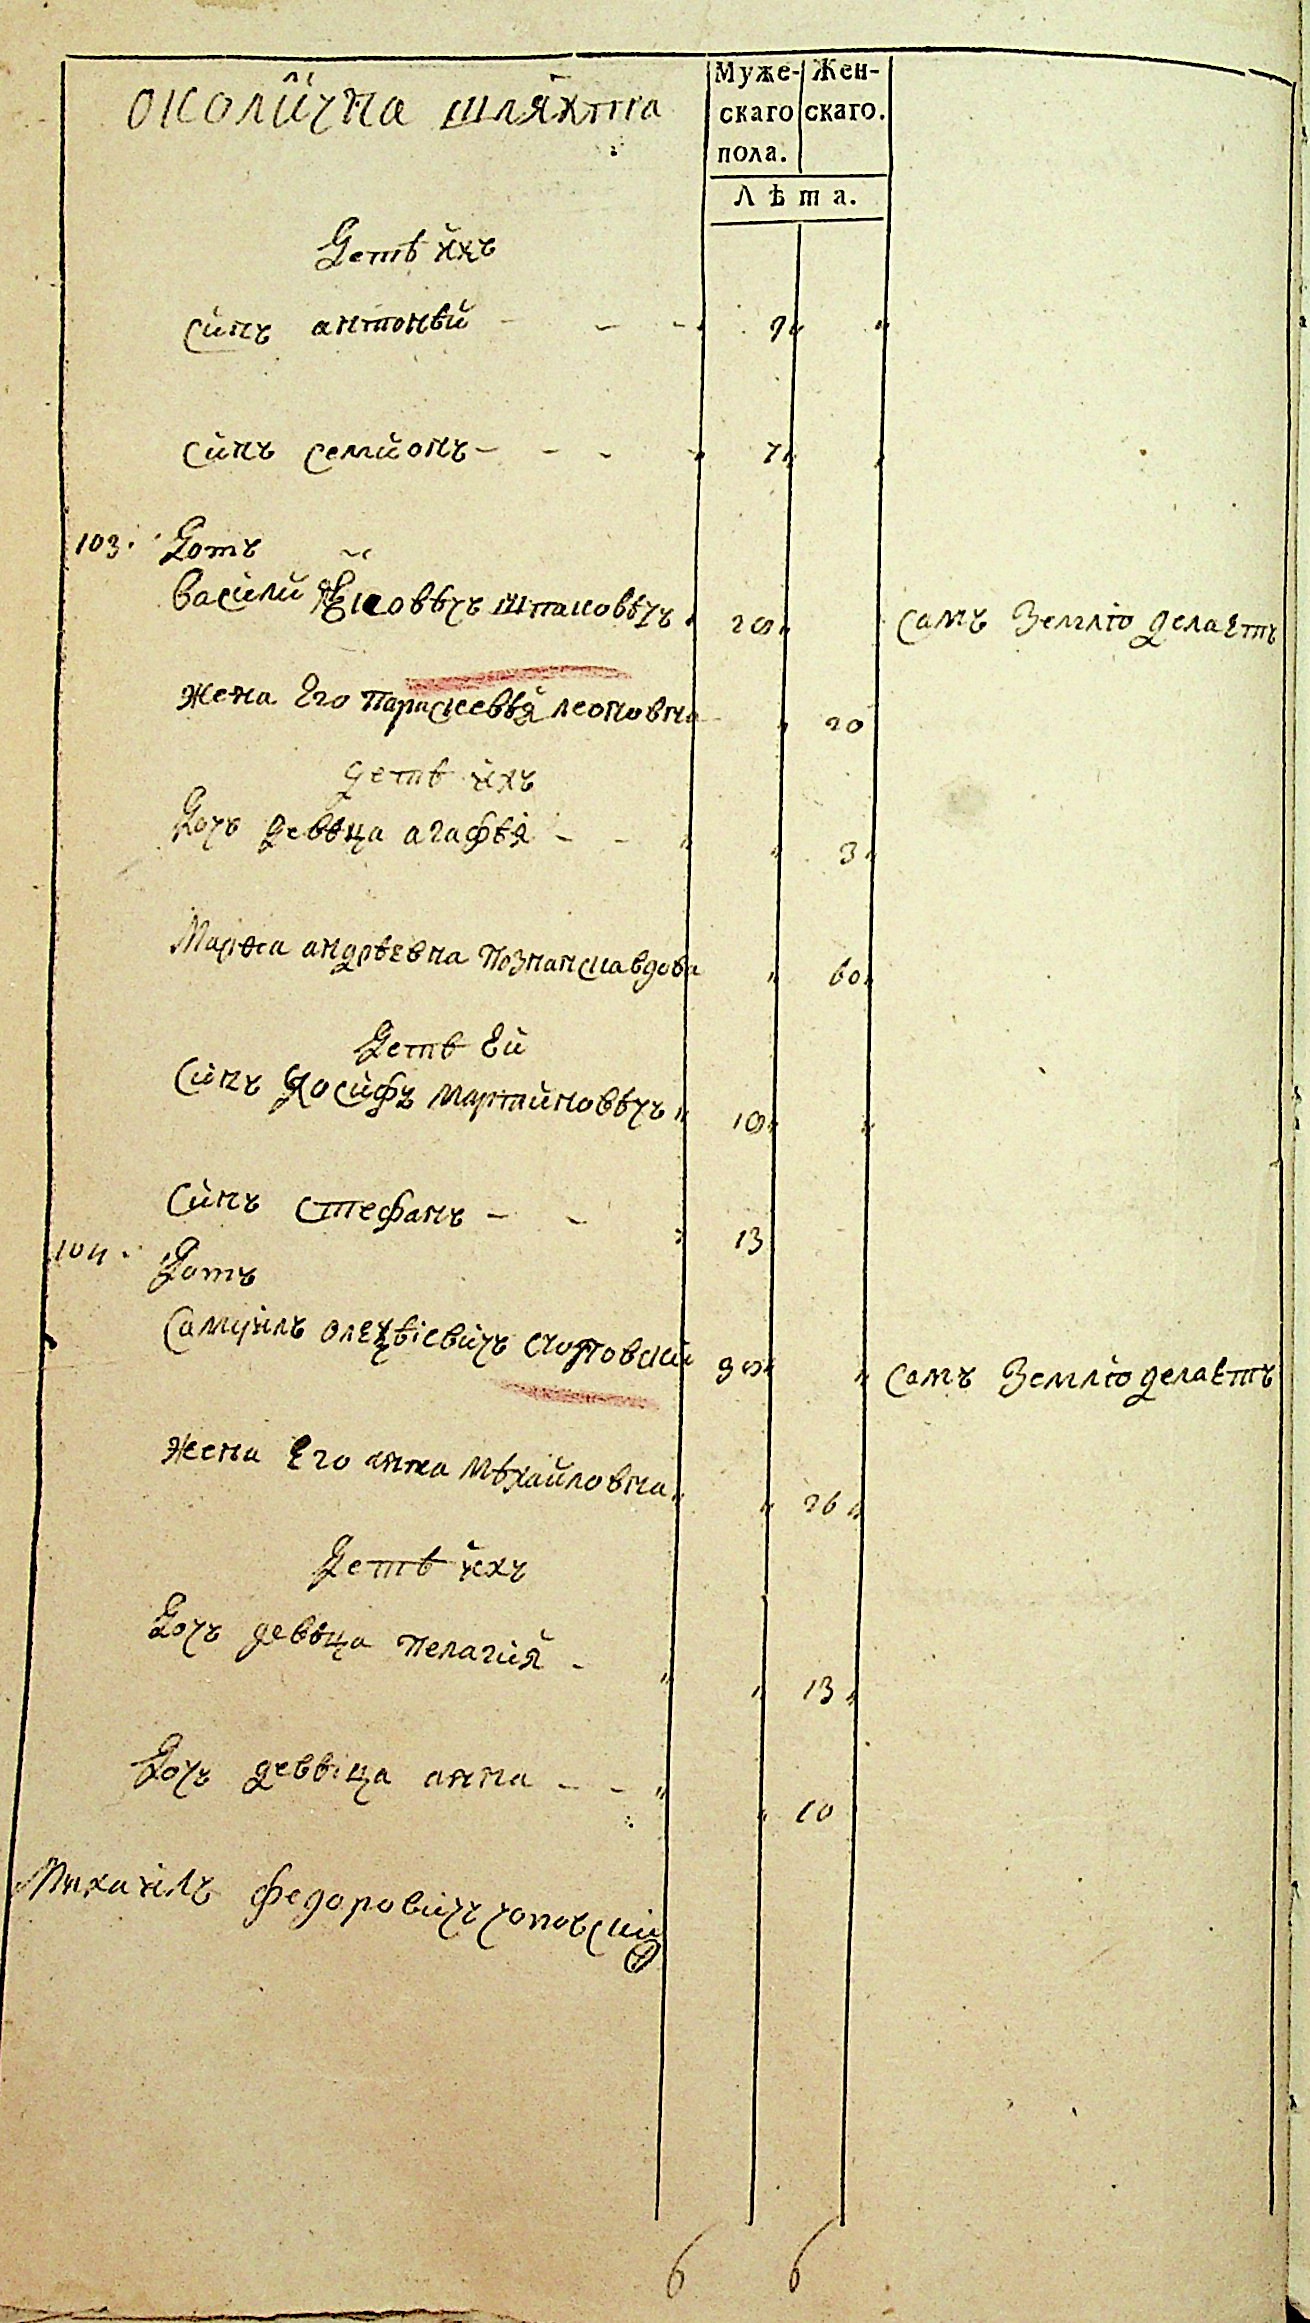 Околична шляхта
Муже-
скаго
пола.
Жен-
скаго.
Лѣта.
Детѣ ихъ
синъ антонѣй
9
синъ семионъ
7
103. Дотъ
василий шпаковѣчъ
самъ землю делаетъ
жена Его параскевѣя леоновна
20
детѣ ихъ
Дочъ девѣца агафѣя
3
андрѣевна познанска вдова
60
Детѣ Ей
Синъ йосифъ мартиновѣчъ
синъ стефанъ
13
104. Дотъ
Самуилъ
самъ землю делаетъ
жена Его анна мѣхайловна
26
Детѣ ихъ
Дочъ девѣца пелагия
13
Дочъ девѣца анна
10
Михаилъ федоровичъ
6 6